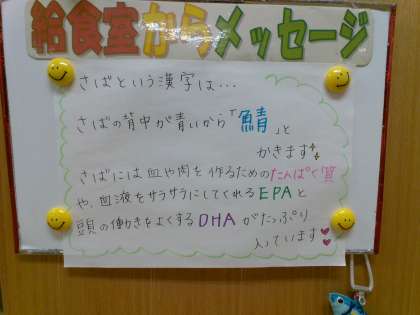 給食室からメッセージ
さばという漢字は…
さばの背中が青いから「鯖」と
かきます
さばには血や肉を作るためのたんぱく質
や、血液をサラサラにしてくれるEPAと
頭の働きをよくするDHAがたっぷり
入っています